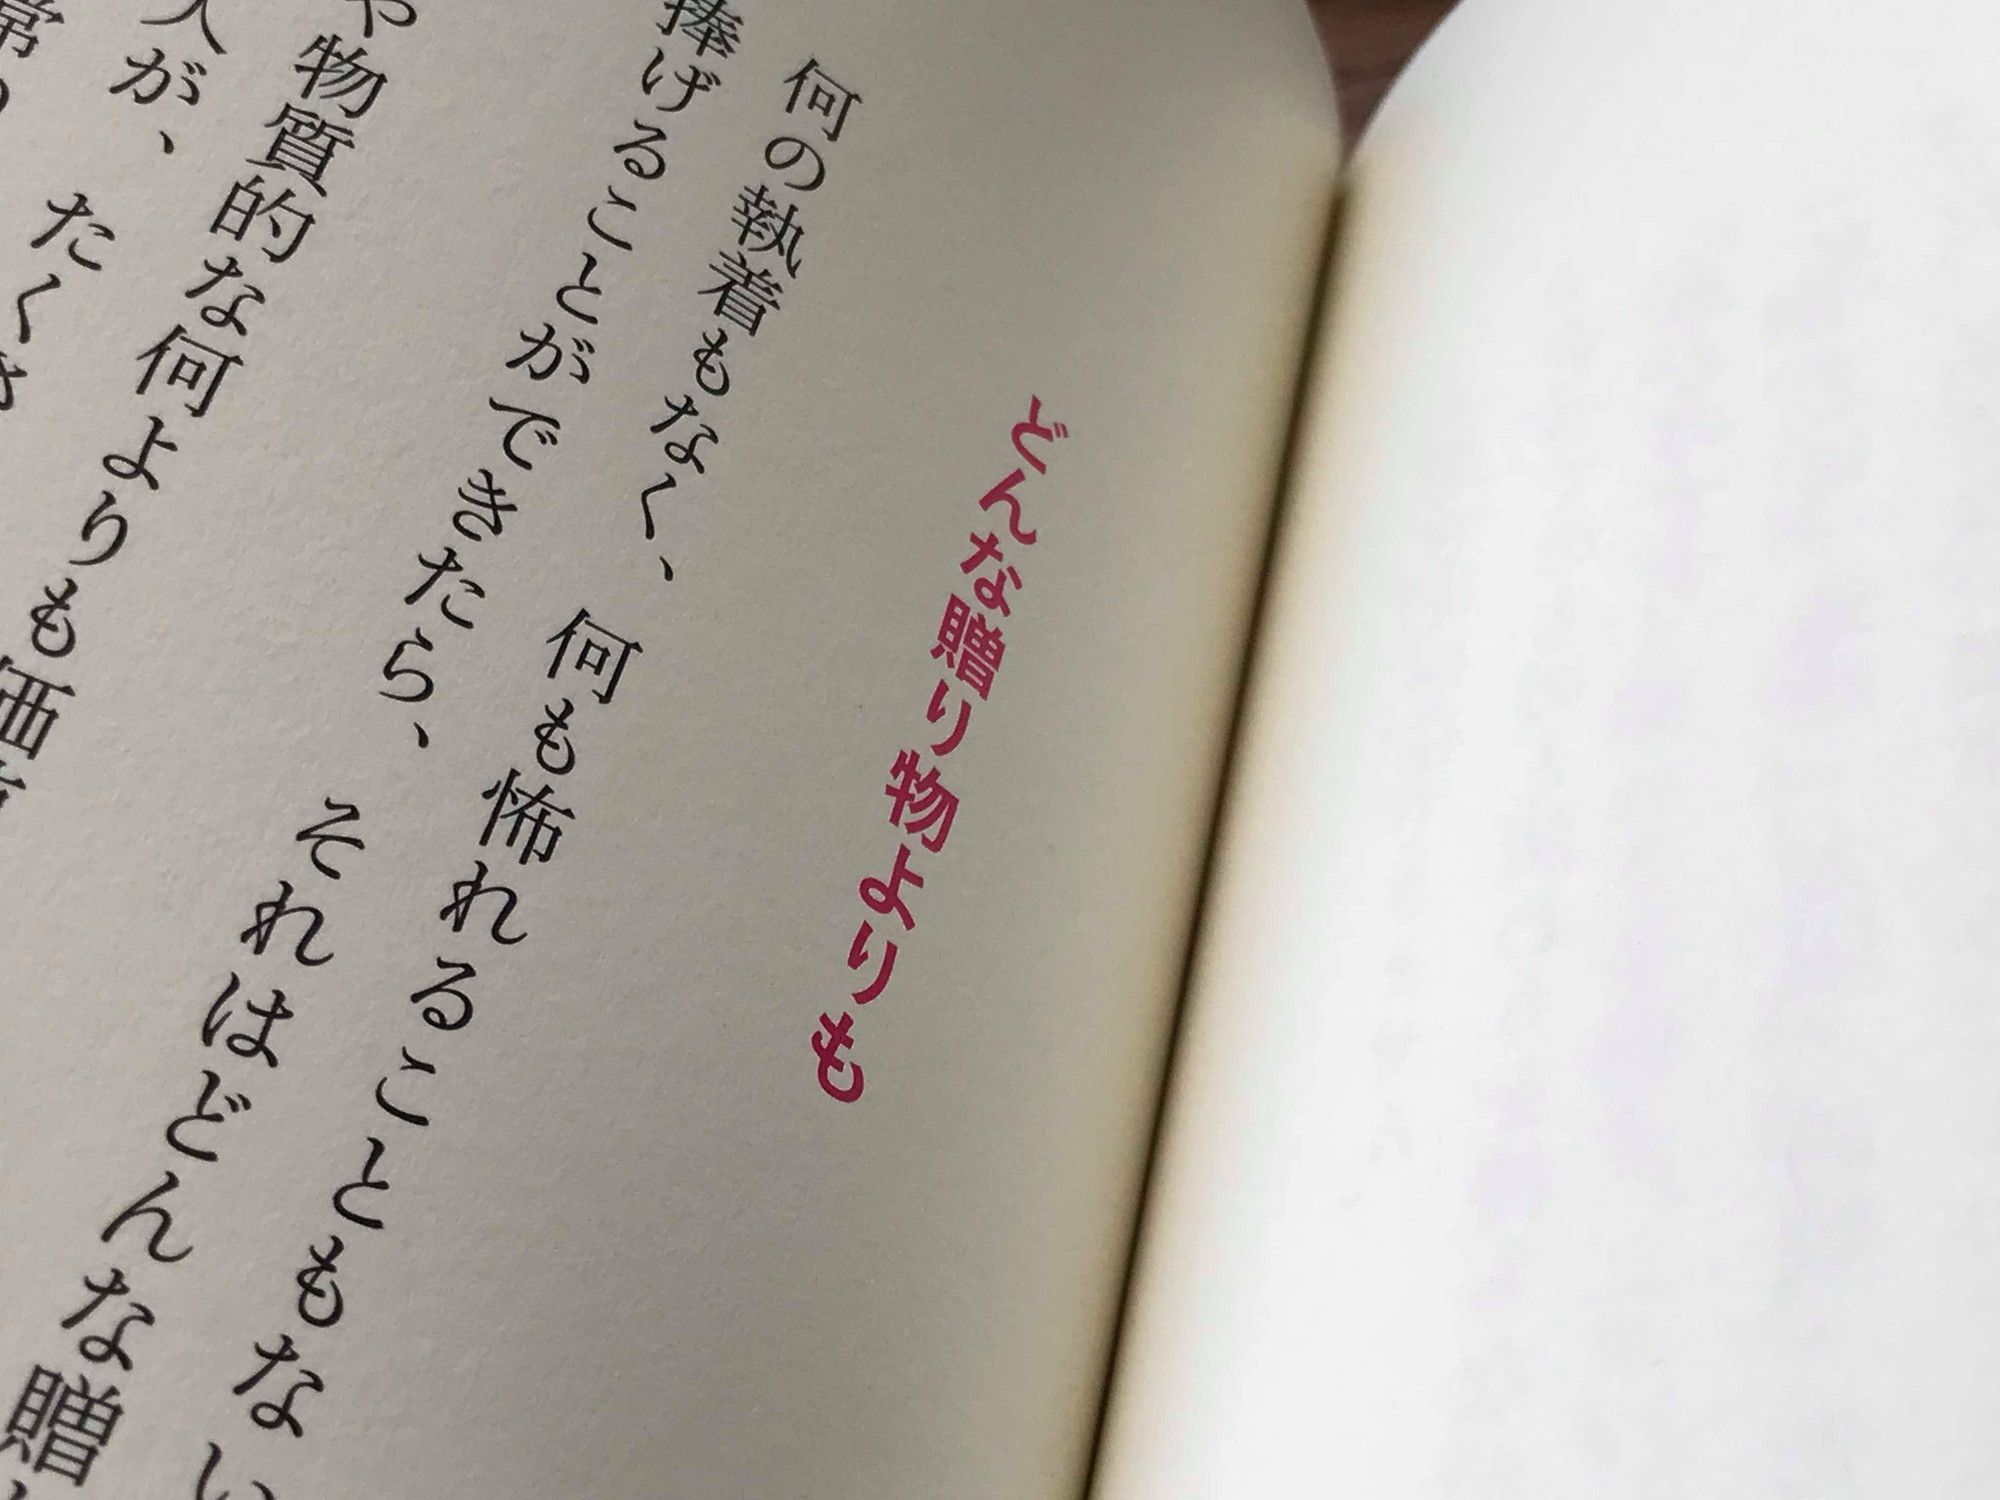 どんな贈り物よりも
何の執着もなく、何も怖れることもない
捧げることができたら、それはどんな贈
や物質的な何よりも価
人が、たくさ
常